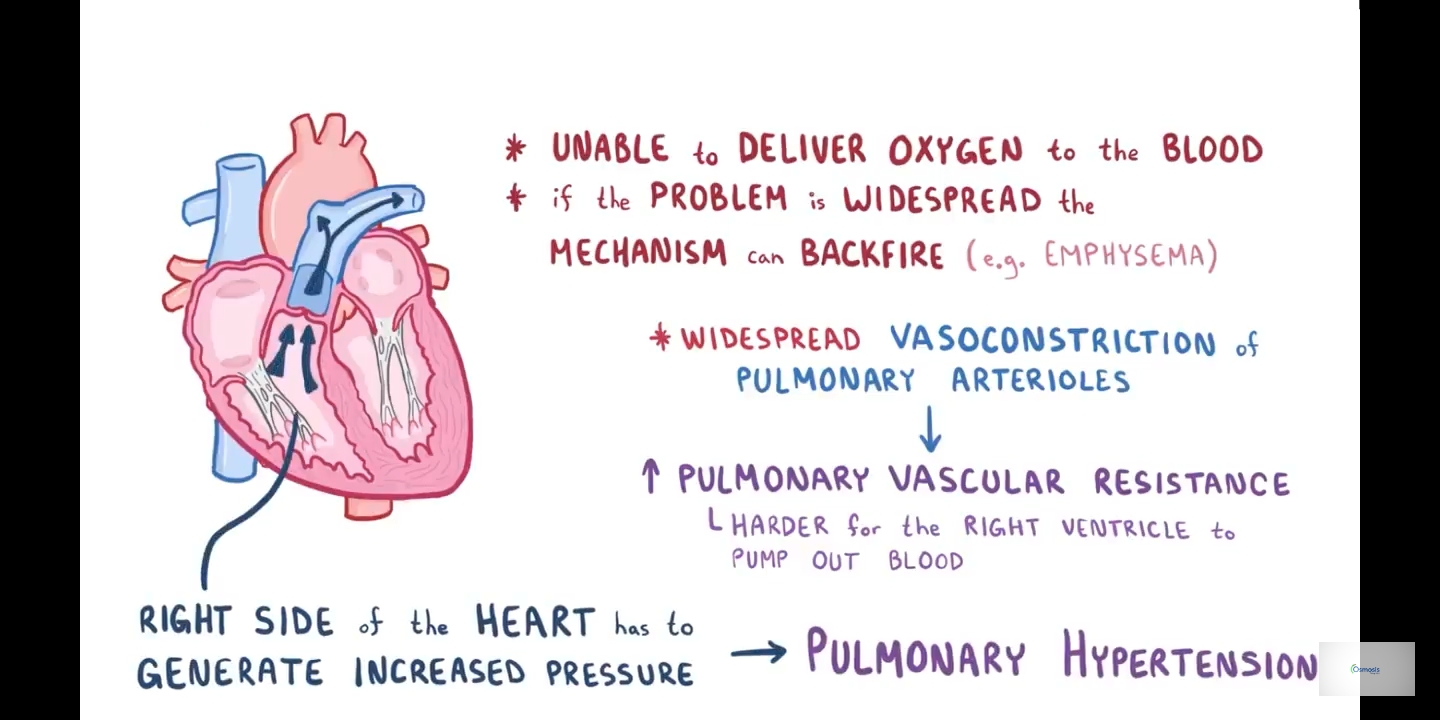 * UNABLE to DELIVER OXYGEN to the BLOOD
* if the PROBLEM is WIDESPREAD the
MECHANISM can BACKFIRE (e.g. EMPHYSEMA)
* WIDESPREAD VASOCONSTRICTION of
PULMONARY ARTERIOLES
↓
↑ PULMONARY VASCULAR RESISTANCE
└ HARDER for the RIGHT VENTRICLE to
PUMP OUT BLOOD
RIGHT SIDE of the HEART has to
GENERATE INCREASED PRESSURE
→ PULMONARY HYPERTENSION
Osmosis